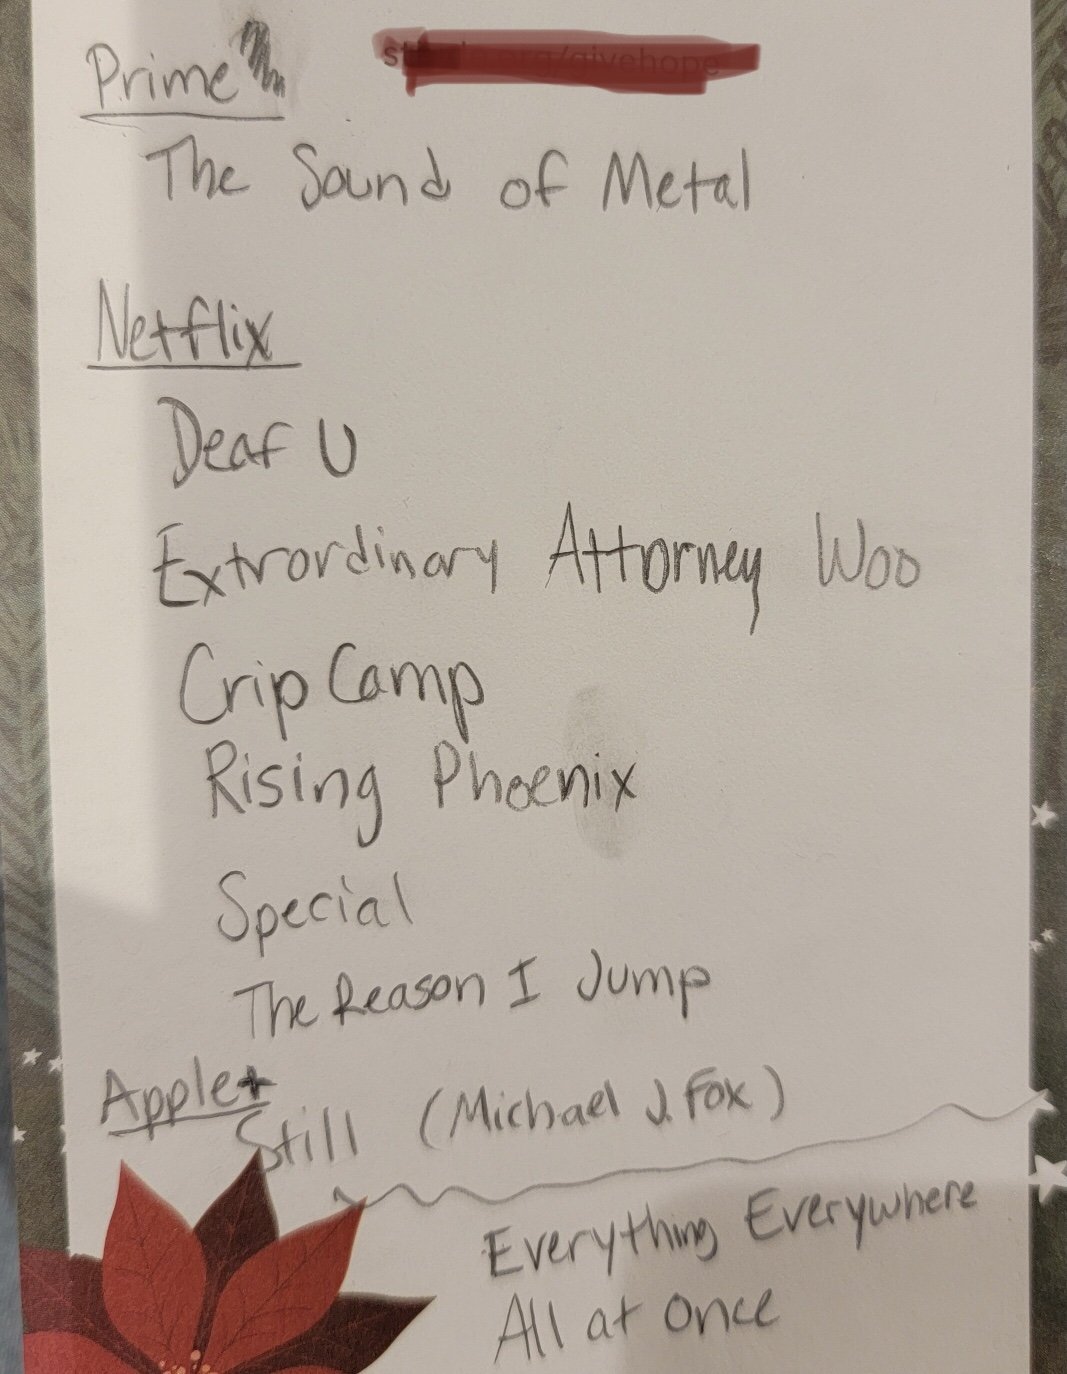 Prime
org/givehope
The Sound of Metal
Netflix
Deaf U
Extrordinary Attorney Woo
Crip Camp
Rising Phoenix
Special
The Reason I Jump
Apple+
Still (Michael J. Fox)
Everything Everywhere
All at once